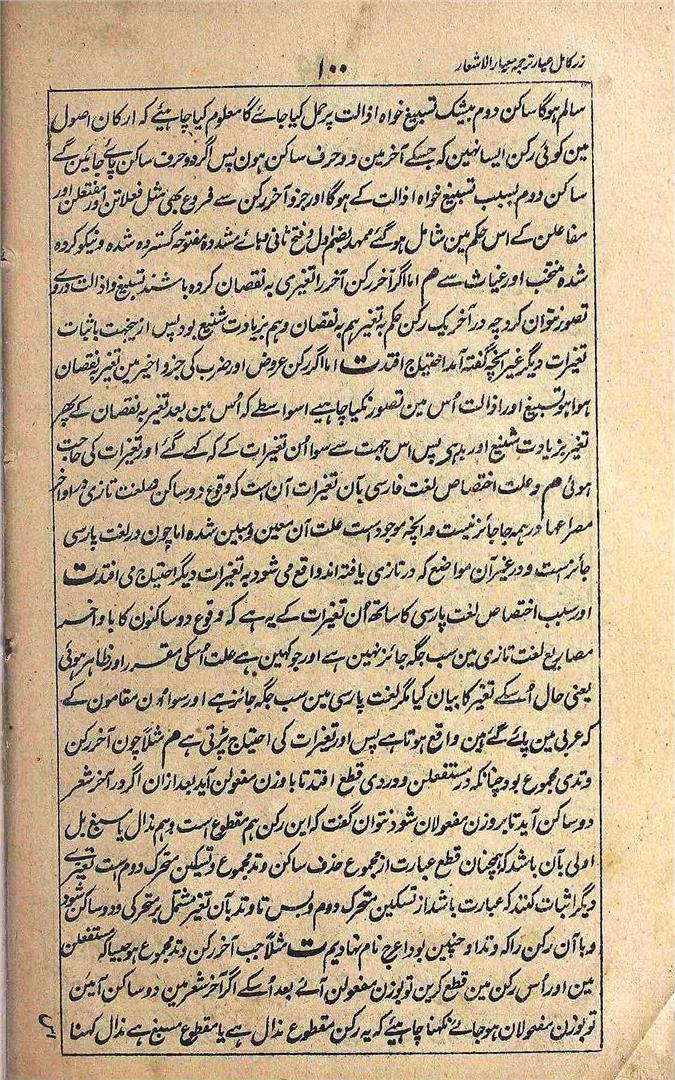 زر کامل عیار ترجمہ معیار الاشعار
۱۰۰
سالم ہوگا ساکن دوم بیشک تسبیغ خواہ اذالت پر حمل کیا جائے گا معلوم کیا چاہیئے کہ ارکان اصول
مین کوئی رکن ایسا نہین کہ جسکے آخر مین دو حرف ساکن ہون پس اگر دو حرف ساکن پائے جائین گے
ساکن دوم بسبب تسبیغ خواہ اذالت کے ہوگا اور جزو آخر رکن سے فروع بھی مثل فعلاتن اور مفتعلن اور
مفاعلن کے اس حکم مین شامل ہوگئے ممہد بضم اول و فتح ثانی وہائے مشددۂ مفتوحہ گستردہ شدہ و نیکو کردہ
شدہ منتخب اور غیاث سے هم اما اگر آخر رکن آخر را تغیری بہ نقصان کردہ باشند تسبیغ و اذالت در وی
تصور نتوان کرد چہ در آخر یک رکن حکم بہ تغیر ہم بہ نقصان و ہم بزیادت شنیع بود پس ازیجہت باثبات
تغیرات دیگر غیر آنچہ گفتہ آمد احتیاج افتد ت اما اگر رکن عروض اور ضرب کی جزو اخیر مین تغیر بنقصان
ہوا ہو تسبیغ اور اذالت اُس مین تصور نکیا چاہیے اسواسطے کہ اُس مین بعد تغیر بہ نقصان کے پھر
تغیر بزیادت شنیع اور بد ہی پس اس جہت سے سوا اُن تغیرات کے کہ کہے گئے اور تغیرات کی حاجت
ہوئی هم و علت اختصاص لغت فارسی بآن تغیرات آن ست کہ وقوع دو ساکن در لغت تازی در اواخر
مصراعہا در ہمہ جا جائز نیست و آنچہ موجود ست علت آن معین و مبین شدہ اما چون در لغت پارسی
جائزست و در غیر آن مواضع کہ در تازی یافتہ اند واقع می شود بہ تغیرات دیگر احتیاج می افتد ت
اور سبب اختصاص لغت پارسی کا ساتھ اُن تغیرات کے یہ ہے کہ وقوع دو ساکنون کا با واخر
مصاریع لغت تازی مین سب جگہ جائز نہین ہے اور جو کہین ہے علت اُسکی مقرر اور ظاہر ہوئی
یعنی حال اُسکے تغیر کا بیان کیا مگر لغت پارسی مین سب جگہ جائز ہے اور سوا اون مقامون کے
کہ عربی مین پائے گئے ہین واقع ہوتا ہے پس اور تغیرات کی احتیاج پڑتی ہے هم مثلاً چون آخر رکن
وتدی مجموع بود چنانکہ در مستفعلن و در وی قطع افتد تا با وزن مفعولن آید بعد ازان اگر در آخر شعر
دو ساکن آید تا بر وزن مفعولان شود نتوان گفت کہ این رکن ہم مقطوع است و ہم مذال یا مسبغ بل
اولی بآن باشد کہ ہمچنان قطع عبارت از مجموع حذف ساکن وتد مجموع و تسکین متحرک دوم ست تغیری
دیگر اثبات کنند کہ عبارت باشد از تسکین متحرک دوم و بس تا وتد بآن تغیر مشتمل بر متحرکی و دو ساکن شود
و ما آن رکن را کہ وتد او چنین بود اعرج نام نہادیم ت مثلاً جب آخر رکن وتد مجموع ہو جیسا کہ مستفعلن
مین اور اُس رکن مین قطع کرین تو بوزن مفعولن آئے بعد اُسکے اگر آخر شعر مین دو ساکن آمین
تو بوزن مفعولان ہو جائے نکہنا چاہیئے کہ یہ رکن مقطوع مذال ہے یا مقطوع مسبغ ہے مذال کہنا